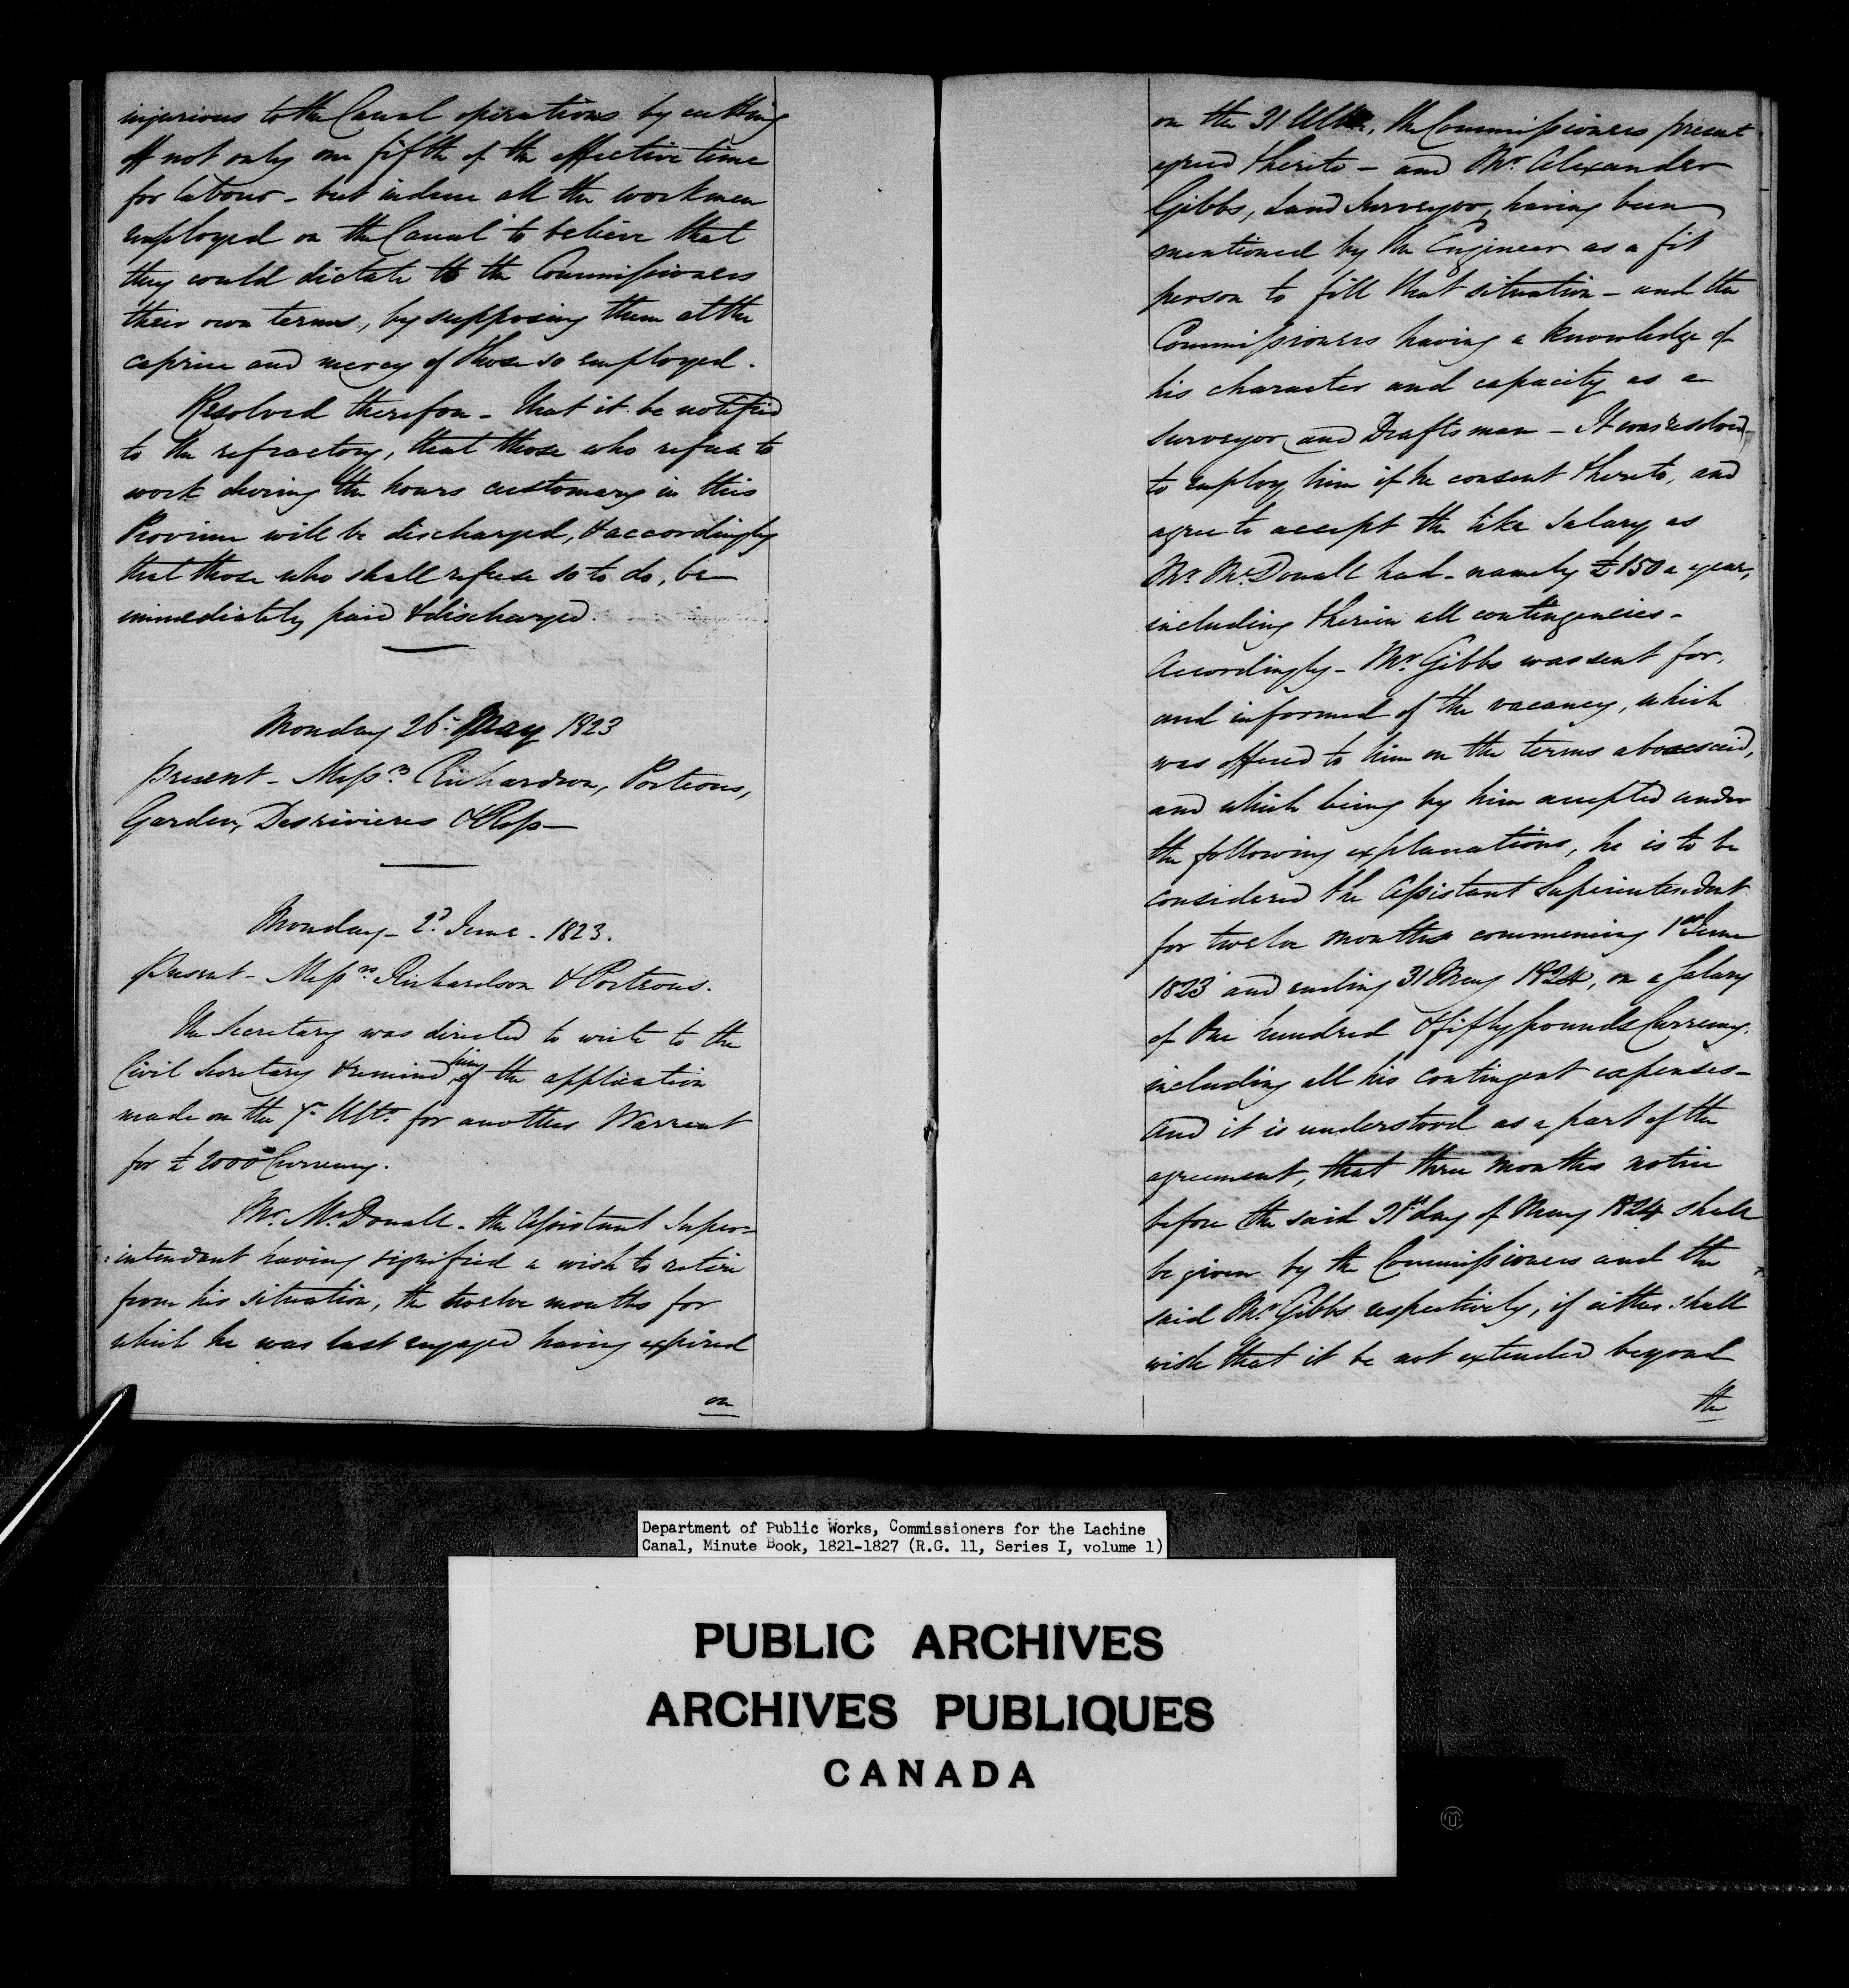 injurious to the Canal operations by cutting
off not only one fifth of the effective time
for labour - but induce all the workmen
employed on the Canal to believe that
they could dictate to the Commissioners
their own terms, by supposing them at the
caprice and mercy of those so employed.
Resolved therefore - that it be notified
to the refractory, that those who refuse to
work during the hours customary in this
Province will be discharged, & accordingly
that those who shall refuse so to do, be
immediately paid & discharged.
Monday 26 May 1823
Present - Messrs Richardson, Porteous,
Garden, Desrivieres & Ross -
Monday - 2d June - 1823.
Present - Messrs Richardson & Porteous.
The Secretary was directed to write to the
Civil Secretary & remind him of the application
made on the 7 Ulto for another Warrant
for £2000 Currency.
Mr. McDonall - the Assistant Super=
=intendant having signified a wish to retire
from his situation, the twelve months for
which he was last engaged having expired
on
on the 31 Ulto, the Commissioners present
agreed thereto - and Mr. Alexander
Gibbs, Land Surveyor, having been
mentioned by the Engineer as a fit
person to fill that situation - and the
Commissioners having a knowledge of
his character and capacity as a
Surveyor and Draftsman - It was resolved
to employ him if he consent thereto, and
agree to accept the like Salary as
Mr. McDonall had - namely £150 a year,
including therein all contingencies -
Accordingly - Mr. Gibbs was sent for,
and informed of the vacancy, which
was offered to him on the terms abovesaid,
and which being by him accepted under
the following explanations, he is to be
considered the Assistant Superintendant
for twelve months commencing 1st June
1823 and ending 31 May 1824, on a Salary
of One hundred & fifty pounds Currency.
including all his contingent expenses -
And it is understood as a part of the
agreement, that three months notice
before the said 31st day of May 1824 shall
be given by the Commissioners and the
said Mr. Gibbs respectively, if either shall
wish that it be not extended beyond
the
Department of Public Works, Commissioners for the Lachine
Canal, Minute Book, 1821-1827 (R.G. 11, Series I, volume 1)
PUBLIC ARCHIVES
ARCHIVES PUBLIQUES
CANADA